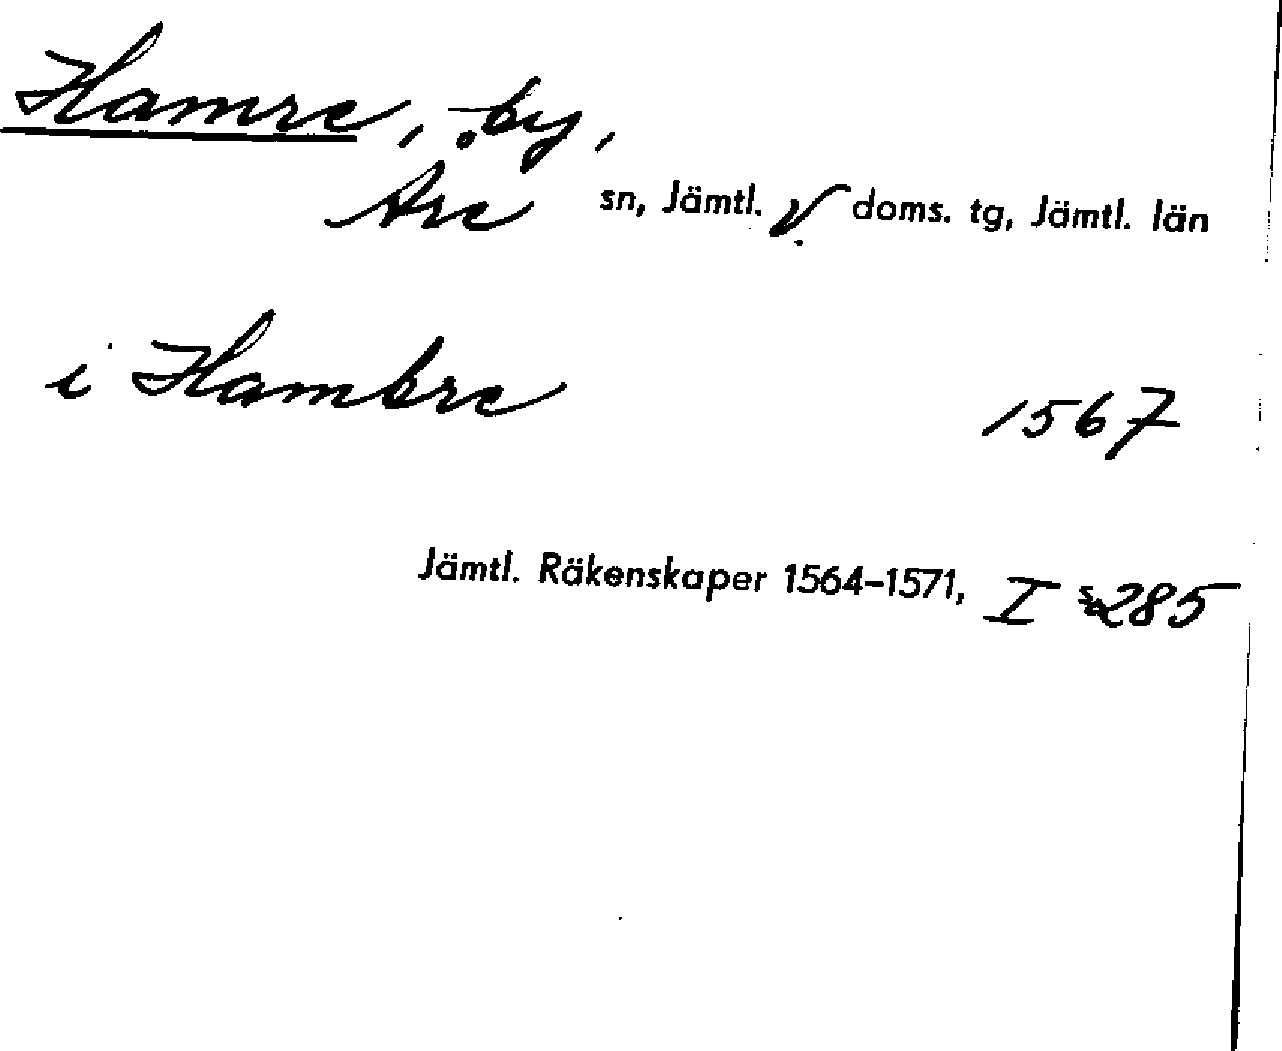 Hamre, by,
Åre sn, Jämtl. v. doms. tg, Jämtl. län
i Hambre 1567
Jämtl. Räkenskaper 1564–1571, I s. 285